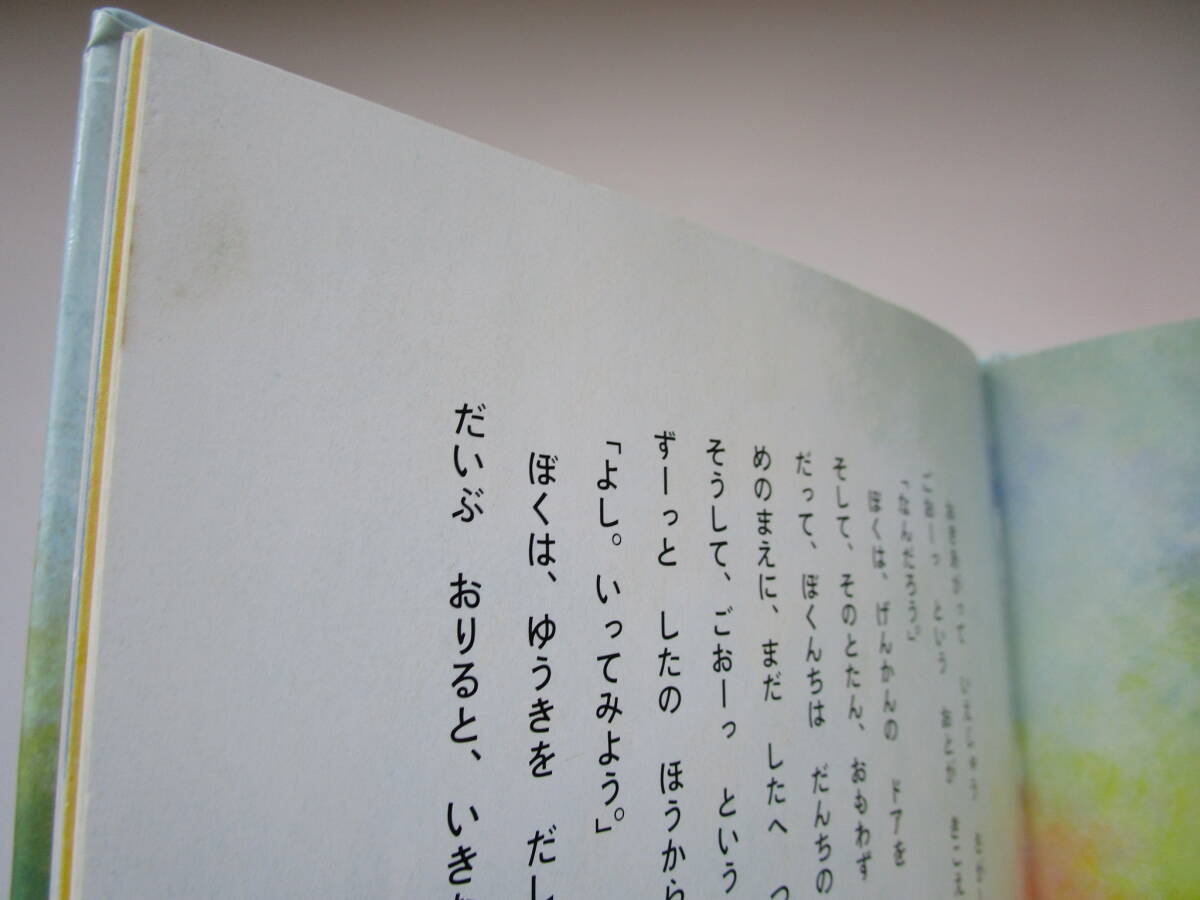 おきあがって いえじゅう
ごおーっ という おとが きこえ
「なんだろう。」
ぼくは、げんかんの ドアを
そして、そのとたん、おもわず
だって、ぼくんちは だんちの
めのまえに、まだ したへ つ
そうして、ごおーっ という
ずーっと したの ほうから
「よし。いってみよう。」
ぼくは、ゆうきを だし
だいぶ おりると、いき